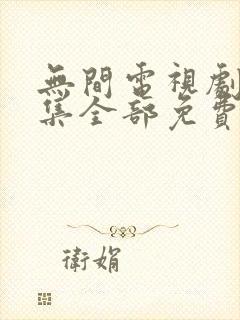 無間電視劇
集全部免費
衛娟